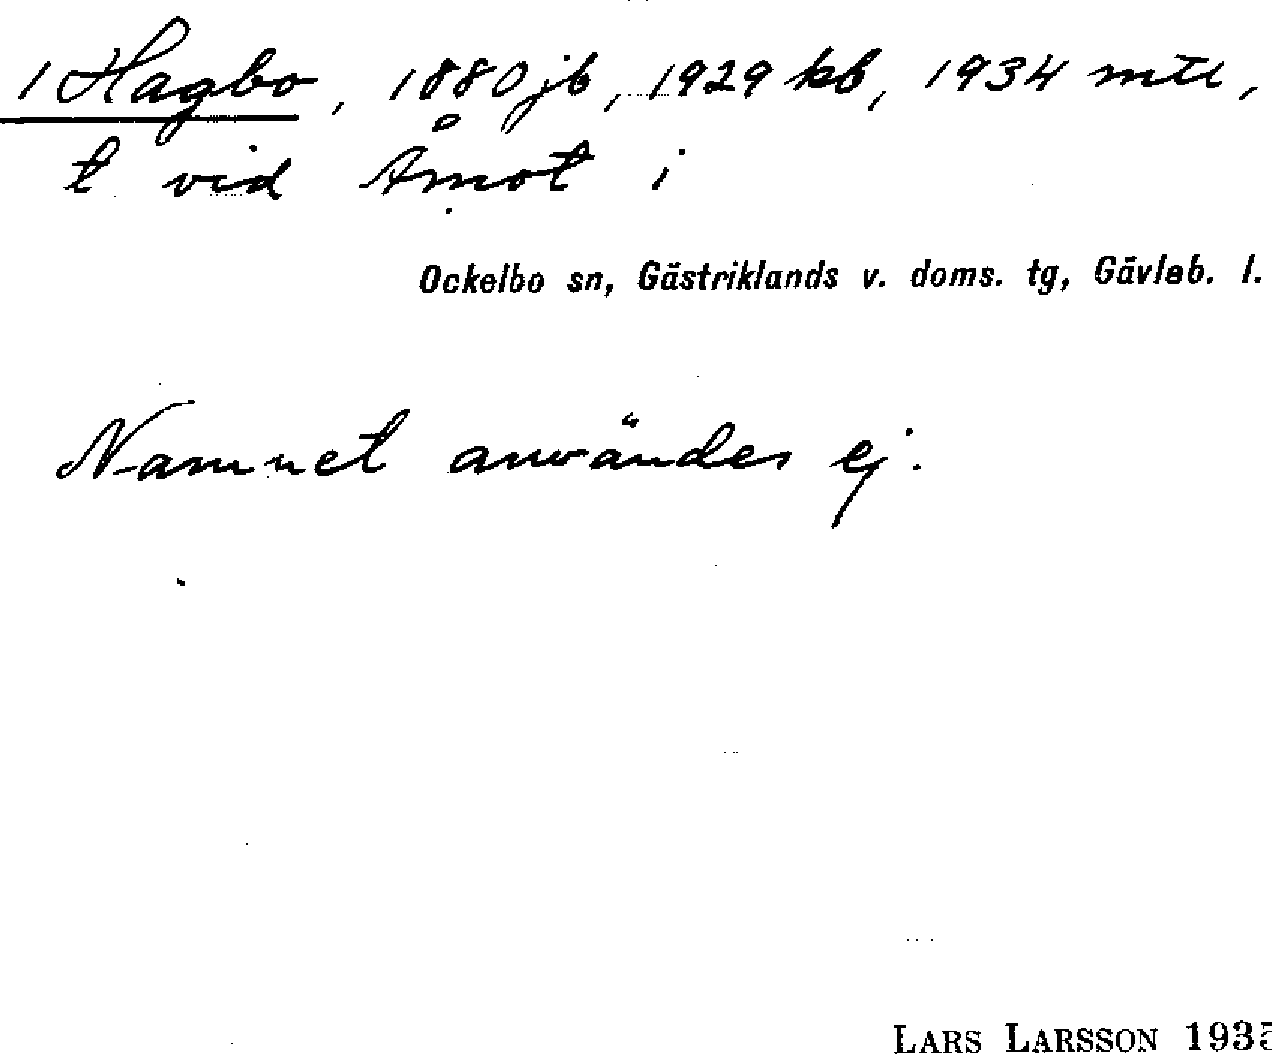 1 Hagbo, 1880 jb, 1929 kb, 1934 mtl,
t vid Åmot i
Ockelbo sn, Gästriklands v. doms. tg, Gävleb. l.
Namnet användes ej.
LARS LARSSON 1935